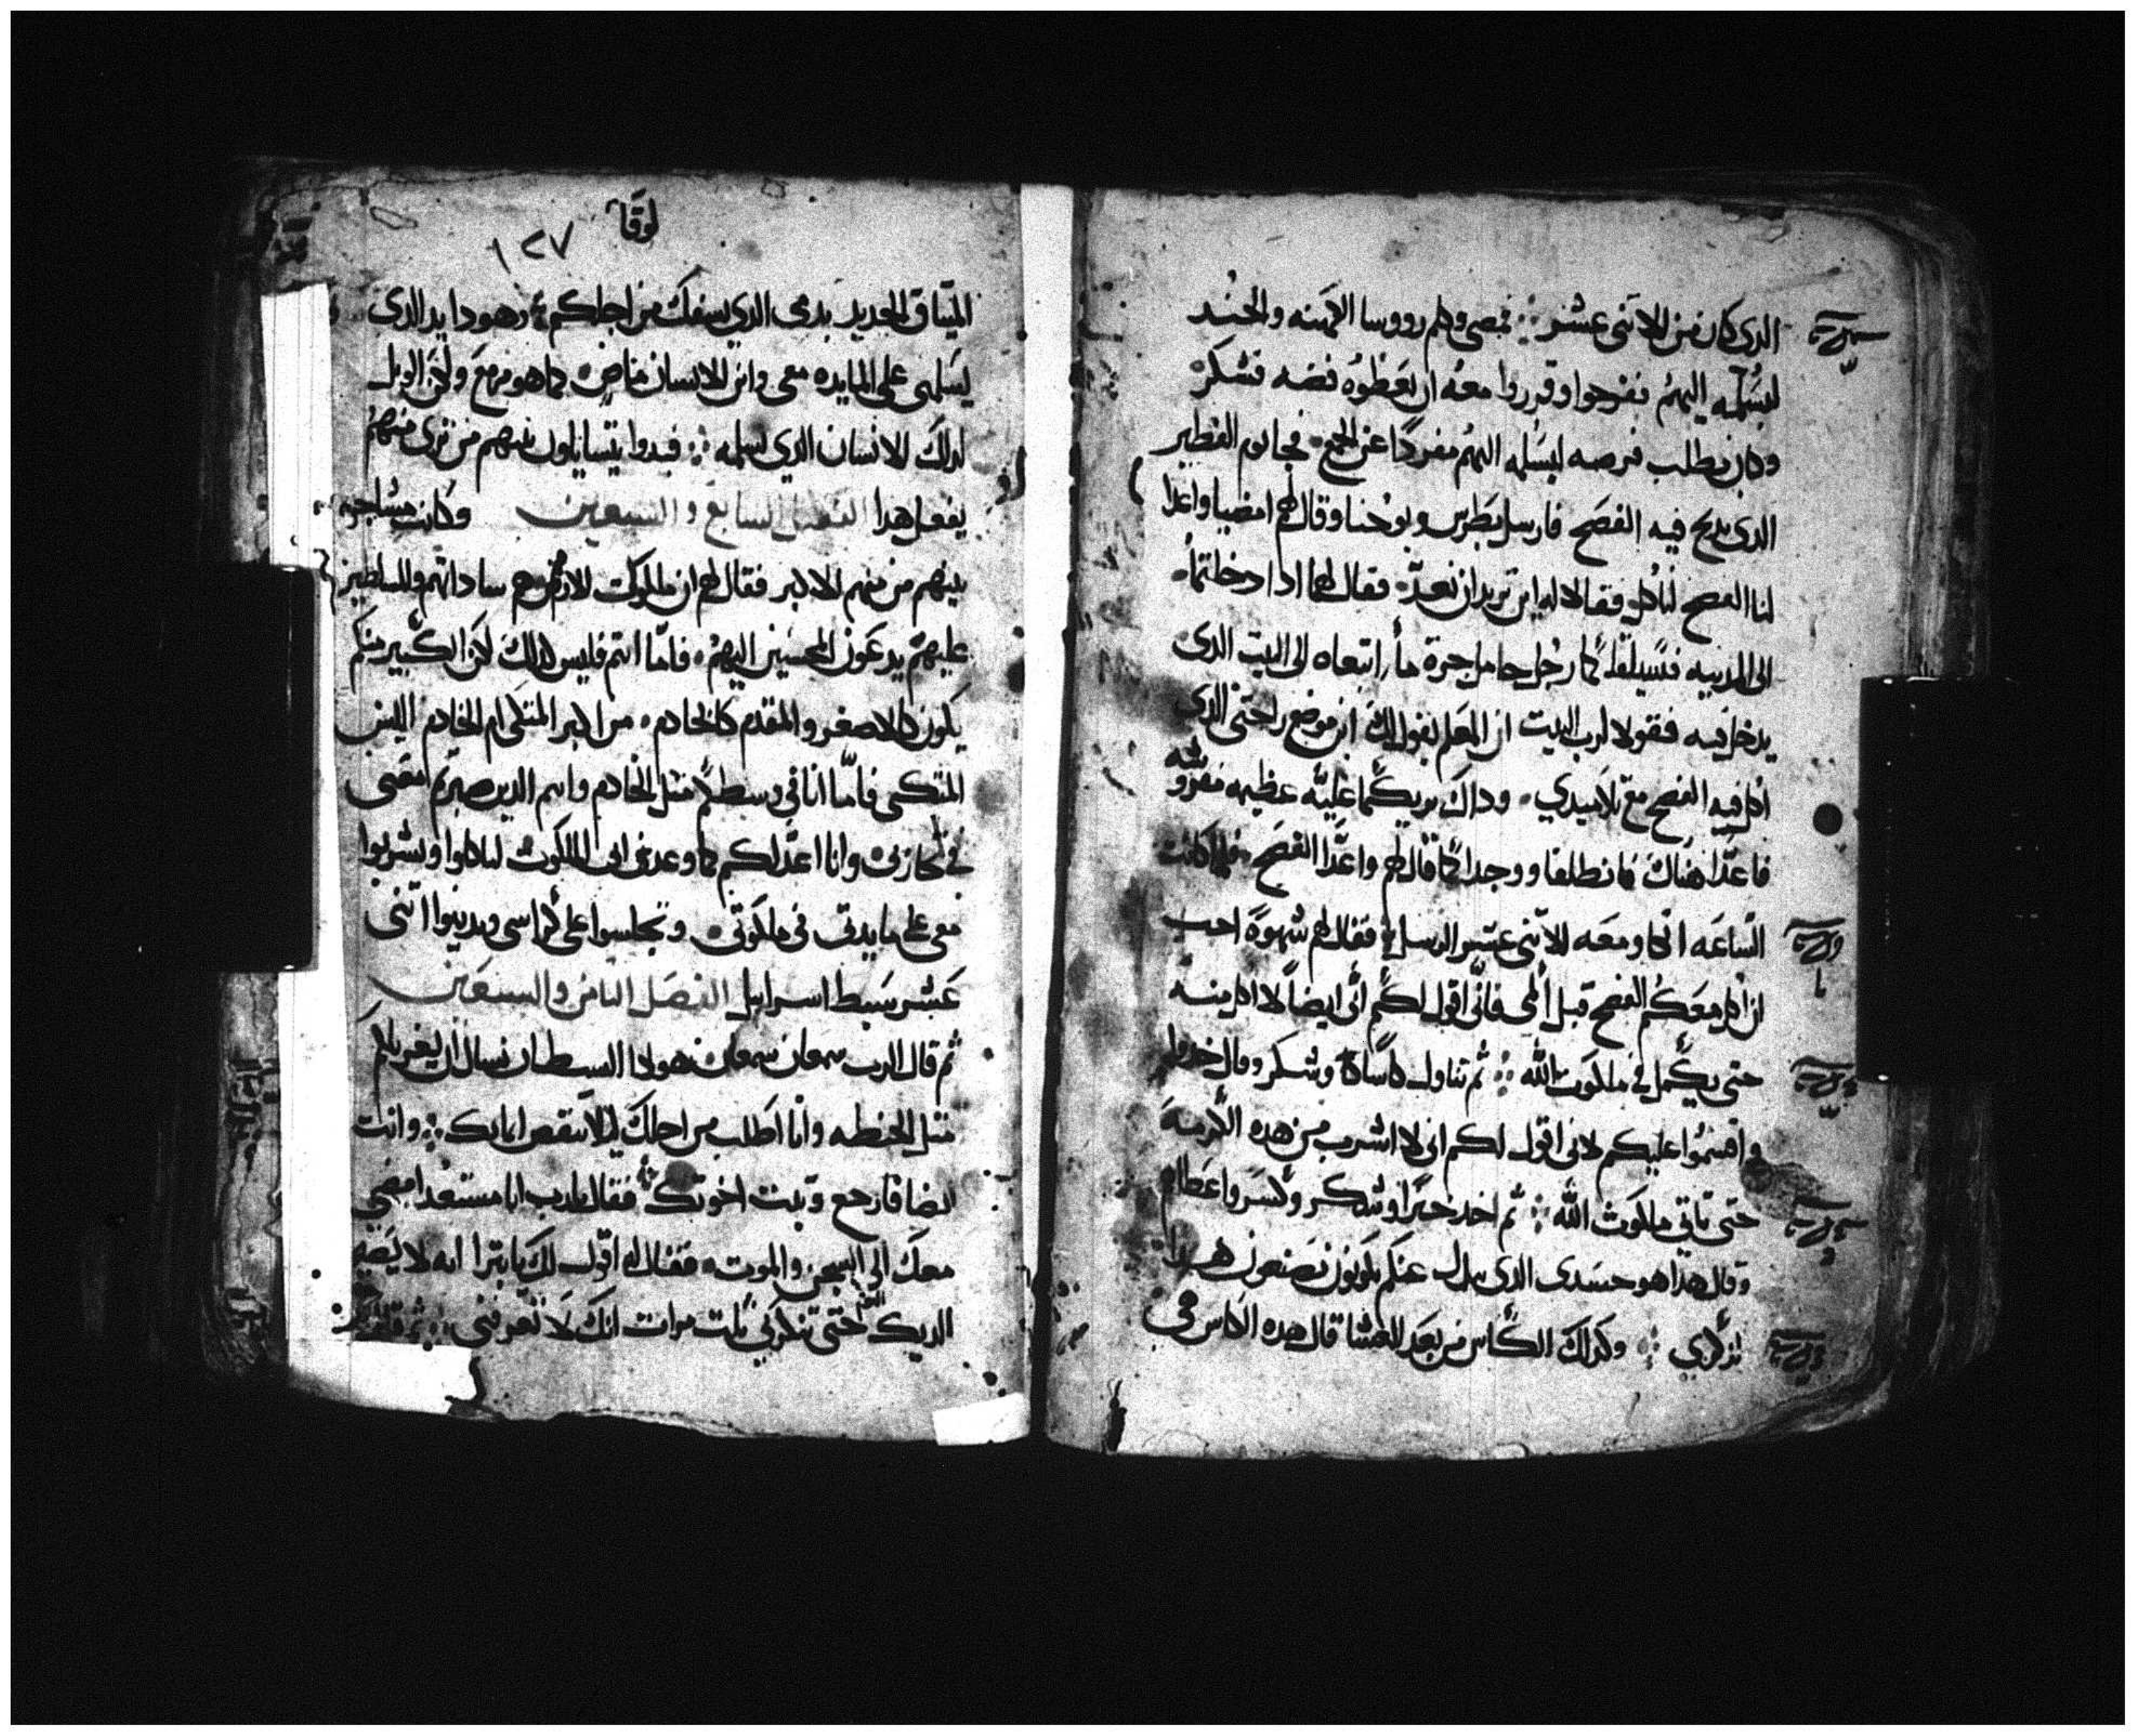 الدى كان من الاتنى عشر ܀ فمضى وكلم رووسا الكهنه والجند
ليسلمه اليهم ففرحوا وقرروا معه ان يعطوه فضه فشكر
وكان يطلب فرصه ليسلمه اليهم مفردًا عن الجمع فجا يوم الفطير
الدى يدبح فيه الفصح فارسل بطرس ويوحنا وقال لهم امضيا واعدا
لنا الفصح لناكل فقالا له اين تريد ان نعد فقال لهما ادا دخلتما
الى المدينه فسيلقاكما رجل حامل جرة ما اتبعاه الى البيت الدى
يدخل فيه فقولا لرب البيت ان المعلم يقول لك اين موضع راحتى الدى
اكل فيه الفصح مع تلاميدي وداك يريكما عليه عظيمه مفروشه
فاعدا هناك فانطلقا ووجدا كما قال لهم واعدا الفصح فلما كانت
الساعه اتكا ومعه الاتنى عشر الرسل فقال لهم شهوة احب
ان اكل معكم الفصح قبل المى فانى اقول لكم انى ايضًا لا اكل منه
حتى يكمل في ملكوت الله ܀ ثم تناول كاسًا وشكر وقال خدوا
واقسموا عليكم لانى اقول لكم انى لا اشرب من هده الكرمة
حتى تاتي ملكوت الله ܀ ثم اخد خبزًا وشكر وكسر واعطاهم
وقال هدا هو جسدى الدى يبدل عنكم تكونون تصنعون هدا
لدكري ܀ وكدلك الكاس من بعد العشا قال هده الكاس هى
لوقا
١٢٧
الميتاق الجديد بدمى الدي يسفك من اجلكم ܀ وهودا يد الدى
يسلمنى على المايده معى وابن الانسان ماض كما هو مزمع ولكن الويل
لدلك الانسان الدي يسلمه ܀ فبدوا يتسايلون بينهم من ترى منهم
يفعل هدا الفصل السابع والتسعين وكانت مشاجره
بينهم من منهم الاكبر فقال لهم ان ملوك الارض هم ساداتهم والمسلطين
عليهم يدعون المحسنين اليهم فاما انتم فليس كدلك لكن الكبير منكم
يكون كالاصغر والمقدم كالخادم من اكبر المتكى ام الخادم اليس
المتكى فاما انا في وسطكم مثل الخادم وانتم الدين صبرتم معى
في تجاربى وانا اعد لكم كما وعدنى ابى الملكوت لتاكلوا وتشربوا
معى على مايدتى فى ملكوتى وتجلسوا على كراسى وتدينوا اتنى
عشر سبط اسراييل الفصل التامن والتسعين
ثم قال الرب سمعان سمعان هودا الشيطان يسال ان يغربلكم
مثل الحنطه وانا اطلب من اجلك ليلا ينقص ايمانك ܀ وانت
ايضا فارجع وتبت اخوتك فقال يارب انا مستعد امضي
معك الى السجن والموت فقال له اقول لك يا بترا انه لا يصيح
الديك حتى تنكرني تلت مرات انك لا تعرفني ܀